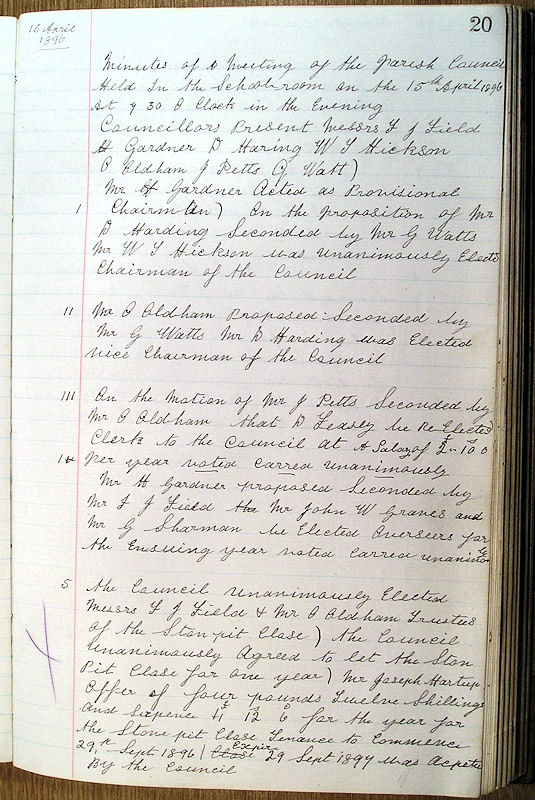 16 April
1896
20
Minutes of a Meeting of the Parish Council
Held In the Schoolroom on the 15th April 1896
At 7 30 O Clock in the Evening
Councillors Present Messrs F J Field
H Gardner D Haring W T Hickson
O Oldham J Petts G Watt)
Mr H Gardner Acted as Provisional
1 Chairman) On the proposition of Mr
D Harding Seconded by Mr G Watts
Mr W T Hickson was unanimously Elected
Chairman of the Council
11 Mr O Oldham Proposed Seconded by
Mr G Watts Mr D Harding was Elected
vice Chairman of the Council
111 On the Motion of Mr J Petts Seconded by
Mr O Oldham that D Leasly be Re Elected
Clerk to the Council at A Salary of £2-10.0
Per year voted carred unanimously
Mr H Gardner proposed Seconded by
Mr F J Field Mr John W Graves and
Mr G Sharman be Elected Overseers for
the Ensuing year voted carred unanimo
5 the Council Unanimously Elected
Messrs F J Field & Mr O Oldham Trustees
of the Ston pit Close) the Council
Unanimously Agreed to let the Ston
Pit Close for one year) Mr Joseph Hartup
Offer of four pounds Twelve Shillings
And Sixpence £4 12 6 for the year for
the Stone pit Close Tenance to Commence
29th Sept 1896 / Close Expir 29 Sept 1897 was Acpeted
By the Council